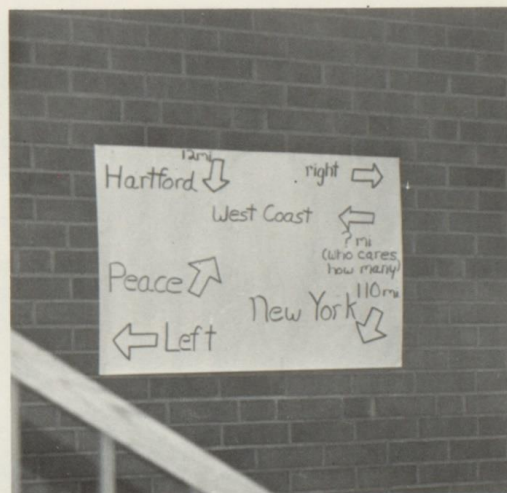 12mi
Hartford
right
West Coast
? mi
(who cares
how many)
Peace
110mi
New York
Left